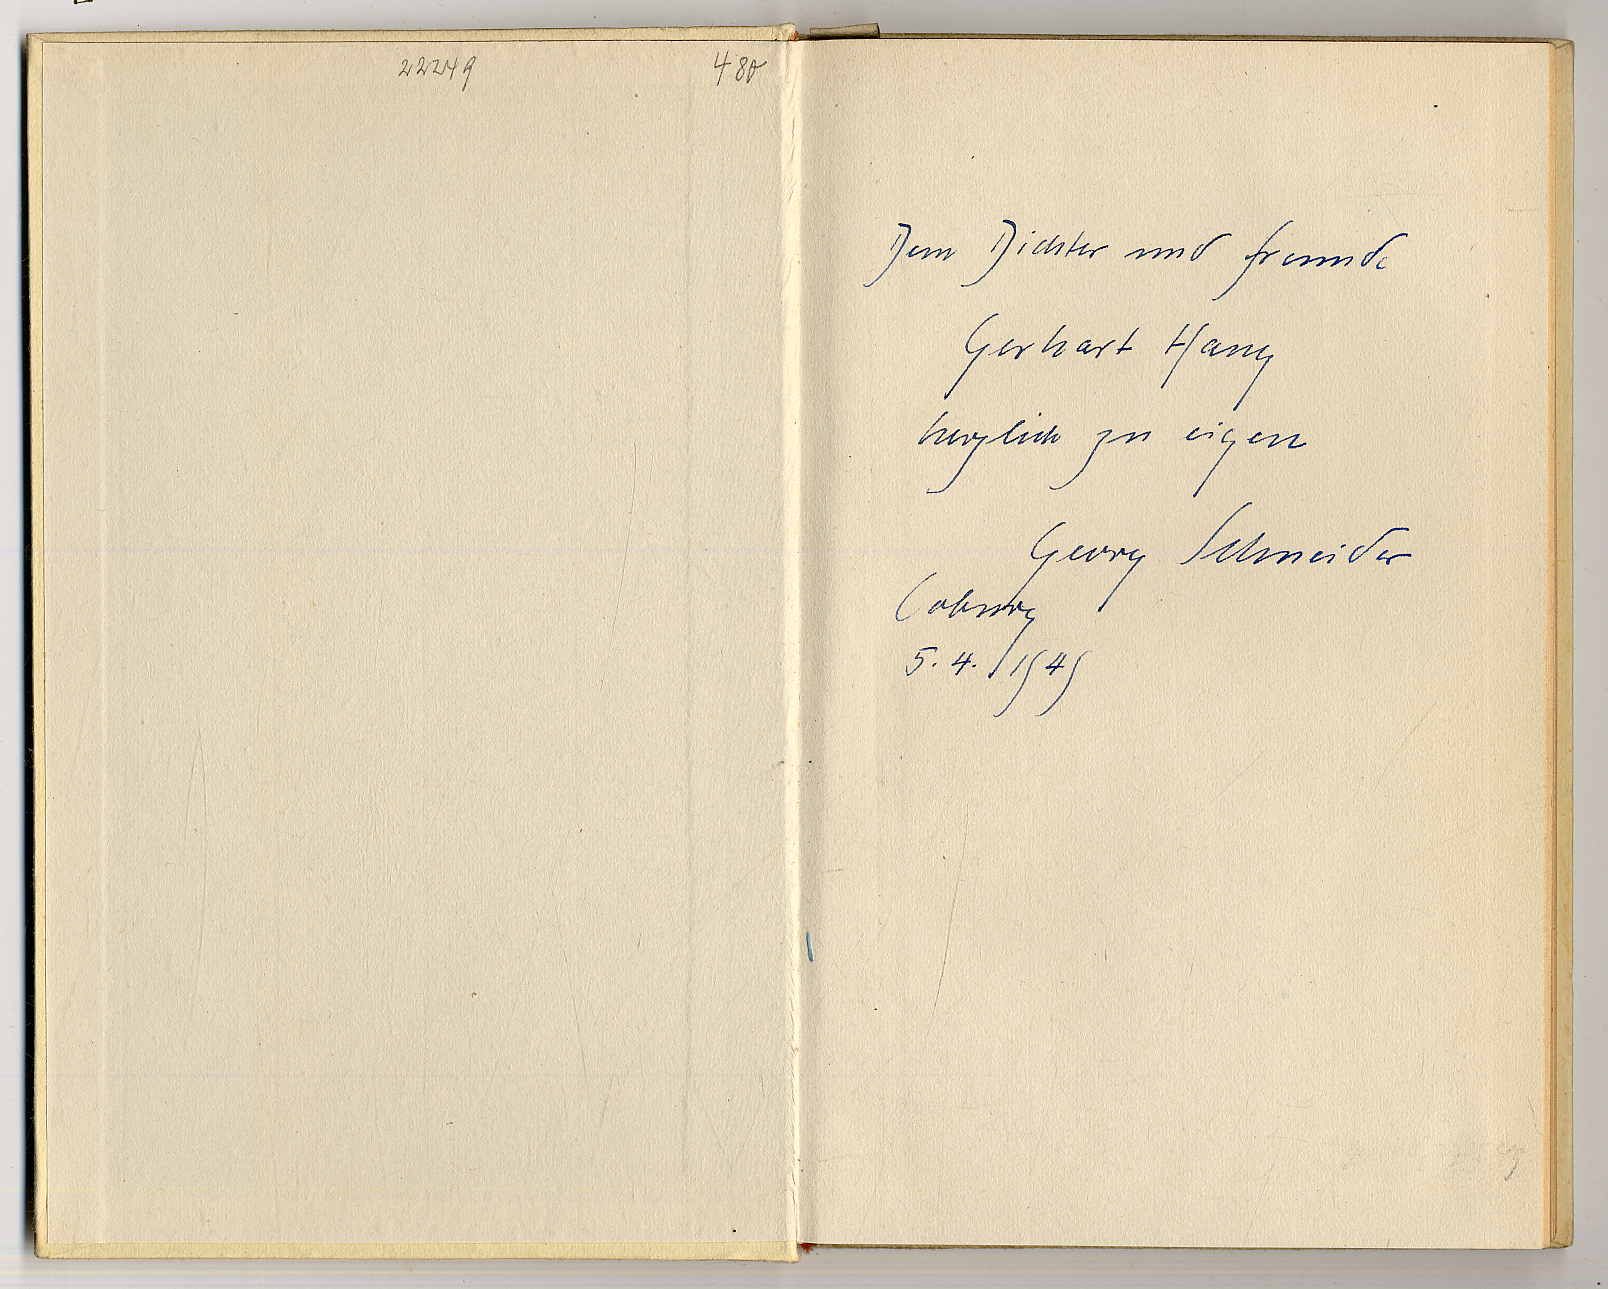 22249
480
Dem Dichter und Freunde
Gerhart Haug
herzlich zu eigen
Georg Schneider
Coburg
5.4.1949